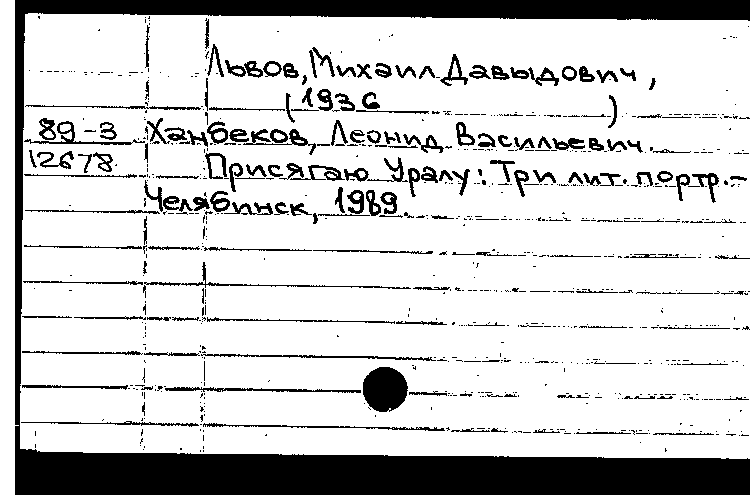 Львов, Михаил Давыдович,
(1936 )
89-3 Ханбеков, Леонид Васильевич.
12678 Присягаю Уралу: Три лит. портр.-
Челябинск, 1989.